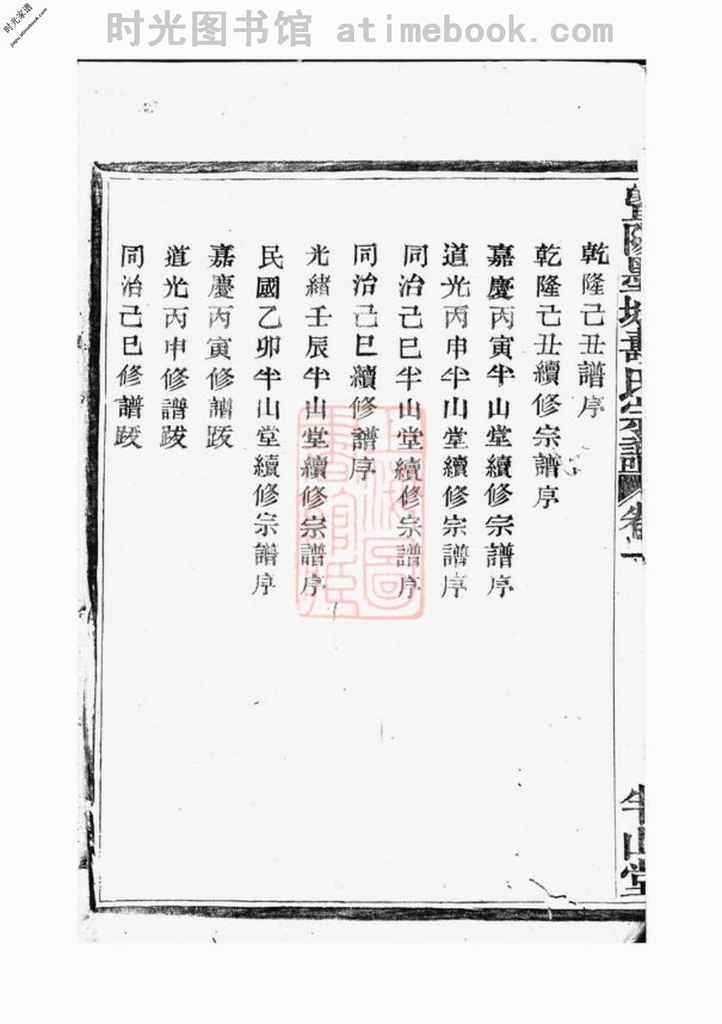 时光图书馆 atimebook.com
时光家谱
jiapu.atimebook.com
乾隆己丑譜序
乾隆己丑續修宗譜序
嘉慶丙寅半山堂續修宗譜序
道光丙申半山堂續修宗譜序
同治己巳半山堂續修宗譜序
同治己巳續修譜序
光緒壬辰半山堂續修宗譜序
民國乙卯半山堂續修宗譜序
嘉慶丙寅修譜跋
道光丙申修譜跋
同治己巳修譜跋
暨陽墨城壽氏宗譜 卷一
半山堂